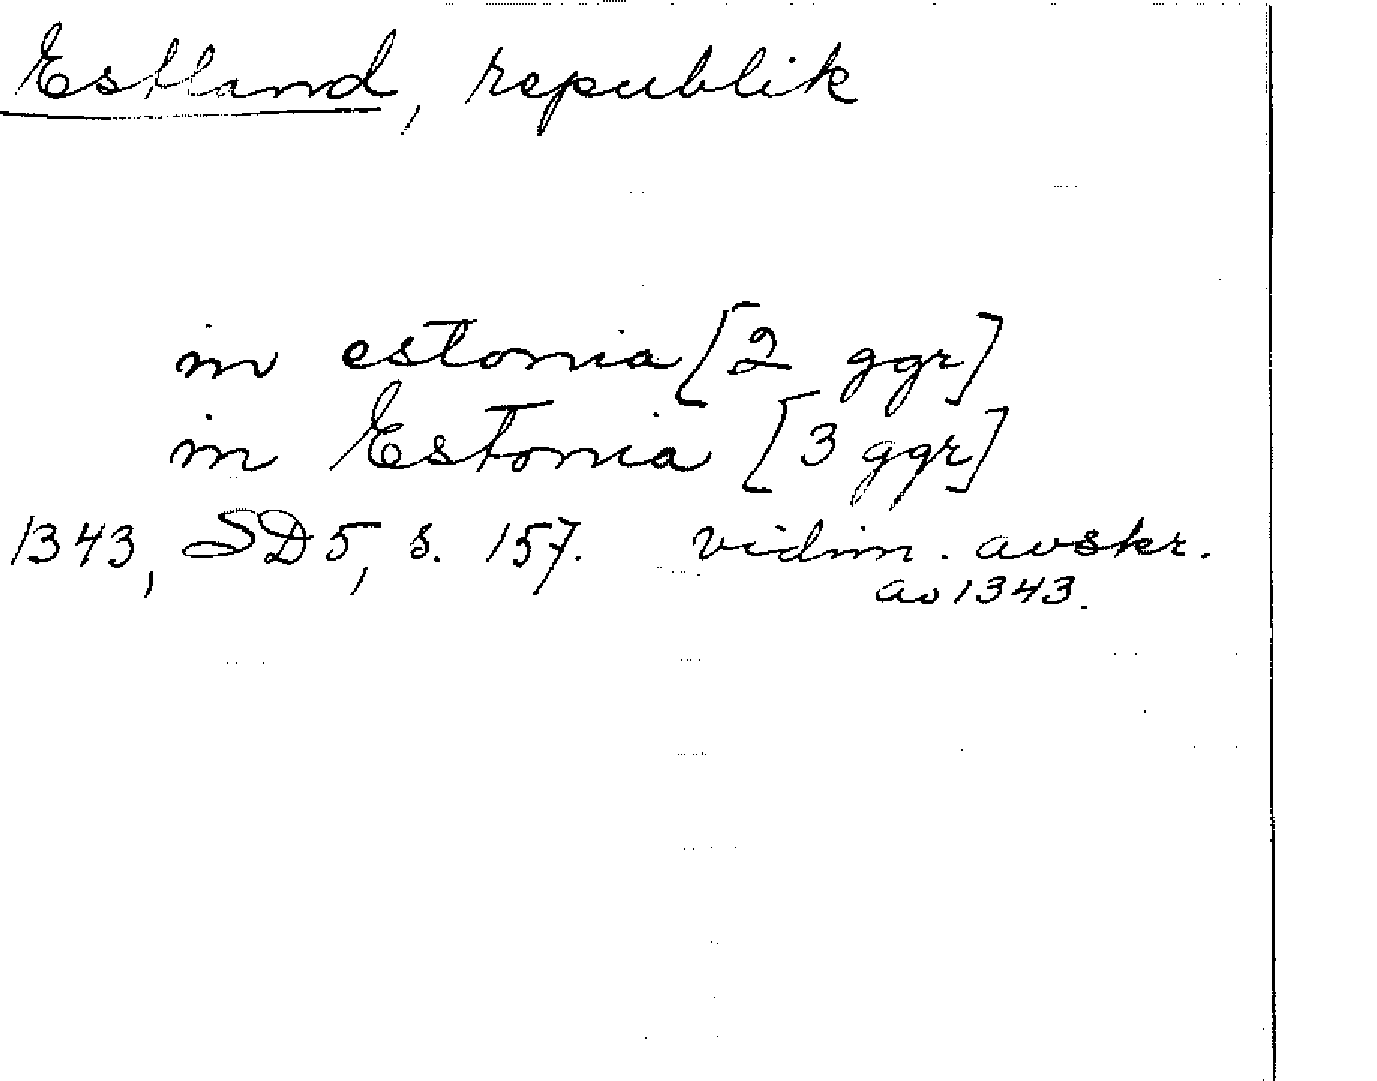 Estland, republik
in estonia [2 ggr]
in Estonia [3 ggr]
1343, SD 5, s. 157. vidim. avskr.
av 1343.